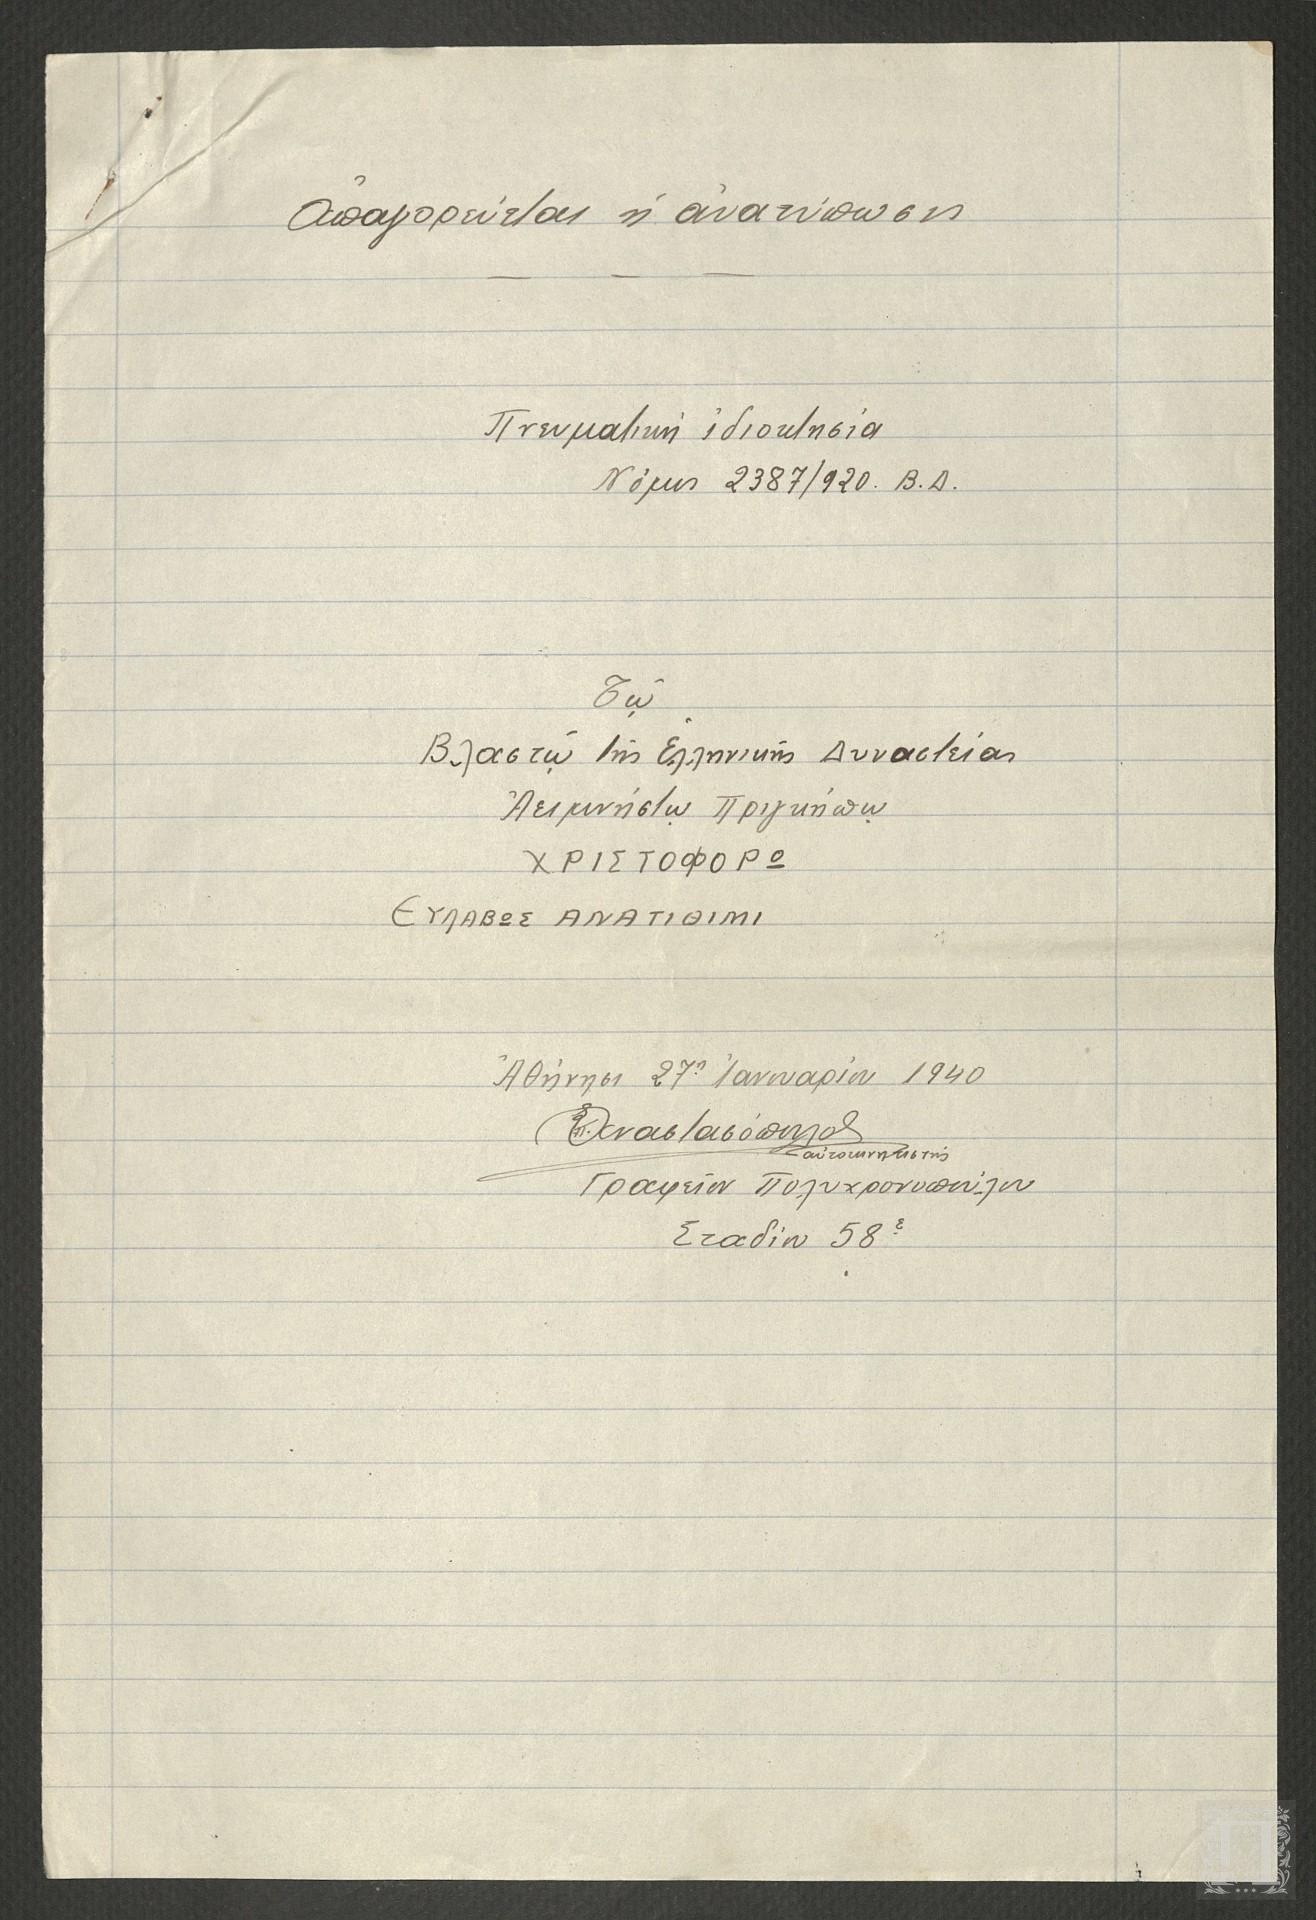 Ἀπαγορεύεται ἡ ἀνατύπωσις
Πνευματικὴ ἰδιοκτησία
Νόμος 2387/920. Β.Δ.
Τῷ
Βλαστῷ τῆς Ἑλληνικῆς Δυναστείας
Ἀειμνήστῳ Πριγκήπῳ
ΧΡΙΣΤΟΦΟΡῼ
ΕΥΛΑΒΩΣ ΑΝΑΤΙΘΙΜΙ
Ἀθήνησι 27η Ἰανουαρίου 1940
αὐτοκινητιστής
Γραφεῖον Πολυχρονοπούλου
Σταδίου 58ε